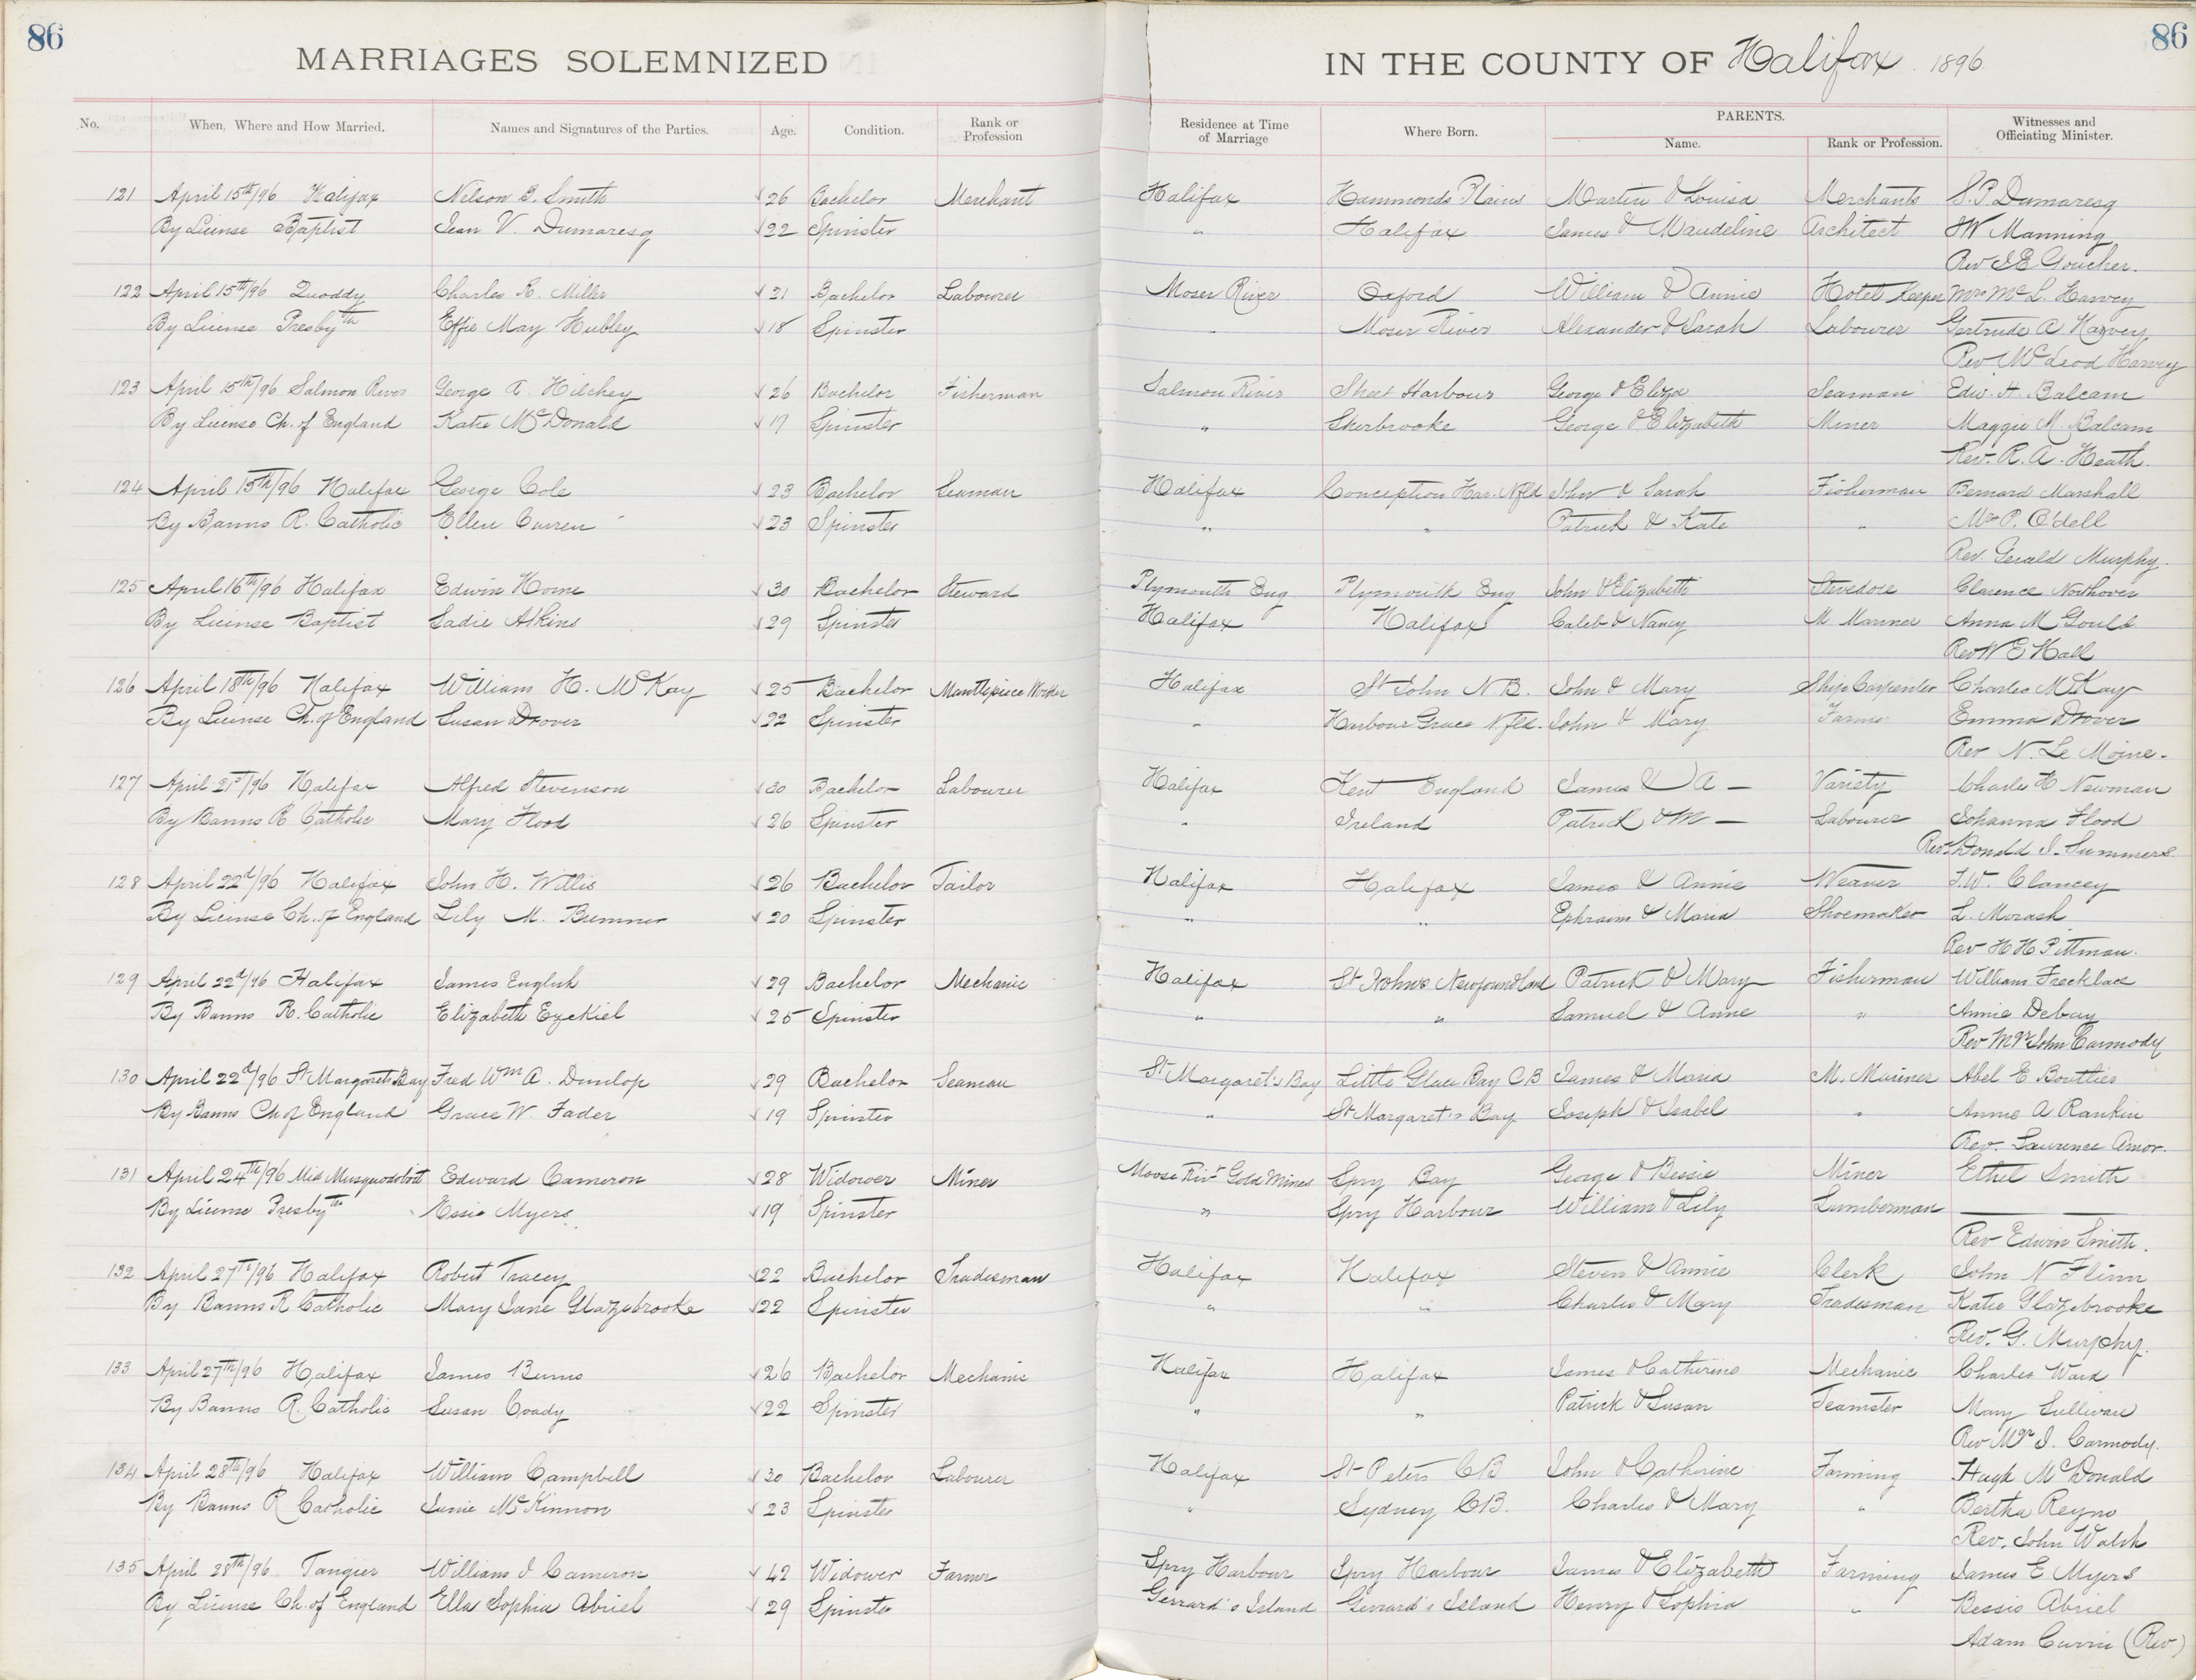 86
86
MARRIAGES SOLEMNIZED
IN THE COUNTY OF Halifax 1896
No. When, Where and How Married. Names and Signatures of the Parties. Age. Condition. Rank or Profession Residence at Time of Marriage Where Born. PARENTS. Name. Rank or Profession. Witnesses and Officiating Minister.
121 April 15th/96 Halifax Nelson B. Smith 26 Bachelor Merchant Halifax Hammonds Plains Martin & Louisa Merchants S. P. Dumaresq
By License Baptist Jean V. Dumaresq 22 Spinster " Halifax James & Maudeline Architect JW Manning
Rev J E Goucher.
122 April 15th/96 Quoddy Charles R. Miller 21 Bachelor Labourer Moser River Oxford William & Annie Hotel Keeper Mrs McL. Harvey
By License Presbyth Effie May Hubley 18 Spinster " Moser River Alexander & Sarah Labourer Gertrude A Harvey
Rev. McLeod Harvey
123 April 15th/96 Salmon River George A. Hilchey 26 Bachelor Fisherman Salmon River Sheet Harbour George & Eliza Seaman Edw. H. Balcam
By License Ch. of England Katie McDonald 17 Spinster " Sherbrooke George & Elizabeth Miner Maggie M. Balcam
Rev. R. A. Heath.
124 April 15th/96 Halifax George Cole 23 Bachelor Seaman Halifax Conception Har. Nfld John & Sarah Fisherman Bernard Marshall
By Banns R. Catholic Ellen Curren 23 Spinster " " Patrick & Kate " Mrs P. O'dell
Rev. Gerald Murphy.
125 April 16th/96 Halifax Edwin Horne 30 Bachelor Steward Plymouth Eng Plymouth Eng John & Elizabeth Stevedore Clarence Northover
By License Baptist Sadie Atkins 29 Spinster Halifax Halifax Caleb & Nancy M Mariner Anna M Gould
Rev W E Hall
126 April 18th/96 Halifax William H. McKay 25 Bachelor Mantlepiece Worker Halifax St John N B. John & Mary Ship Carpenter Charles McKay
By License Ch. of England Susan Drover 22 Spinster " Harbour Grace Nfld. John & Mary Farmer Emma Drover
Rev N. Le Moine.
127 April 21st/96 Halifax Alfred Stevenson 30 Bachelor Labourer Halifax Kent England James & A — Variety Charles H Newman
By Banns R Catholic Mary Flood 26 Spinster " Ireland Patrick & M — Labourer Johanna Flood
Rev. Donald J. Summers
128 April 22d/96 Halifax John H. Willis 26 Bachelor Tailor Halifax Halifax James & Annie Weaver J.W. Clancey
By License Ch. of England Lily M. Bremner 20 Spinster " " Ephraim & Maria Shoemaker L. Morash
Rev H H Pittman.
129 April 22d/96 Halifax James English 29 Bachelor Mechanic Halifax St Johns Newfoundland Patrick & Mary Fisherman William
By Banns R. Catholic Elizabeth Ezekiel 25 Spinster " " Samuel & Anne " Annie Debay
Rev Mgr John Carmody
130 April 22d/96 St Margarets Bay Fred Wm A. Dunlop 29 Bachelor Seaman St Margaret's Bay Little Glace Bay CB James & Maria M. Mariner Abel E Bouttier
By Banns Ch of England Grace W. Fader 19 Spinster " St Margaret's Bay Joseph & Isabel " Annie A Rankin
Rev. Laurence Amor.
131 April 24th/96 Mid Musquodoboit Edward Cameron 28 Widower Miner Moose Rivr Gold Mines Spry Bay George & Bessie Miner Ethel Smith
By License Presbyth Essie Myers 19 Spinster " Spry Harbour William & Lily Lumberman —
Rev Edwin Smith.
132 April 27th/96 Halifax Robert Tracey 22 Bachelor Tradesman Halifax Halifax Steven & Annie Clerk John N Flinn
By Banns R Catholic Mary Jane Glazebrooke 22 Spinster " " Charles & Mary Tradesman Katie Glazebrooke
Rev. G. Murphy.
133 April 27th/96 Halifax James Burns 26 Bachelor Mechanic Halifax Halifax James & Catherine Mechanic Charles Ward
By Banns R. Catholic Susan Coady 22 Spinster " " Patrick & Susan Teamster Mary Sullivan
Rev Mgr J. Carmody.
134 April 28th/96 Halifax William Campbell 30 Bachelor Labourer Halifax St Peters CB John & Catherine Farming Hugh McDonald
By Banns R Catholic Janie McKinnon 23 Spinster " Sydney CB. Charles & Mary " Bertha Reyno
Rev. John Walsh
135 April 28th/96 Tangier William J Cameron 42 Widower Farmer Spry Harbour Spry Harbour James & Elizabeth Farming James E Myers
By License Ch. of England Ella Sophia Abriel 29 Spinster Gerrard's Island Gerrard's Island Henry & Sophia " Bessie Abriel
Adam Currie (Rev)